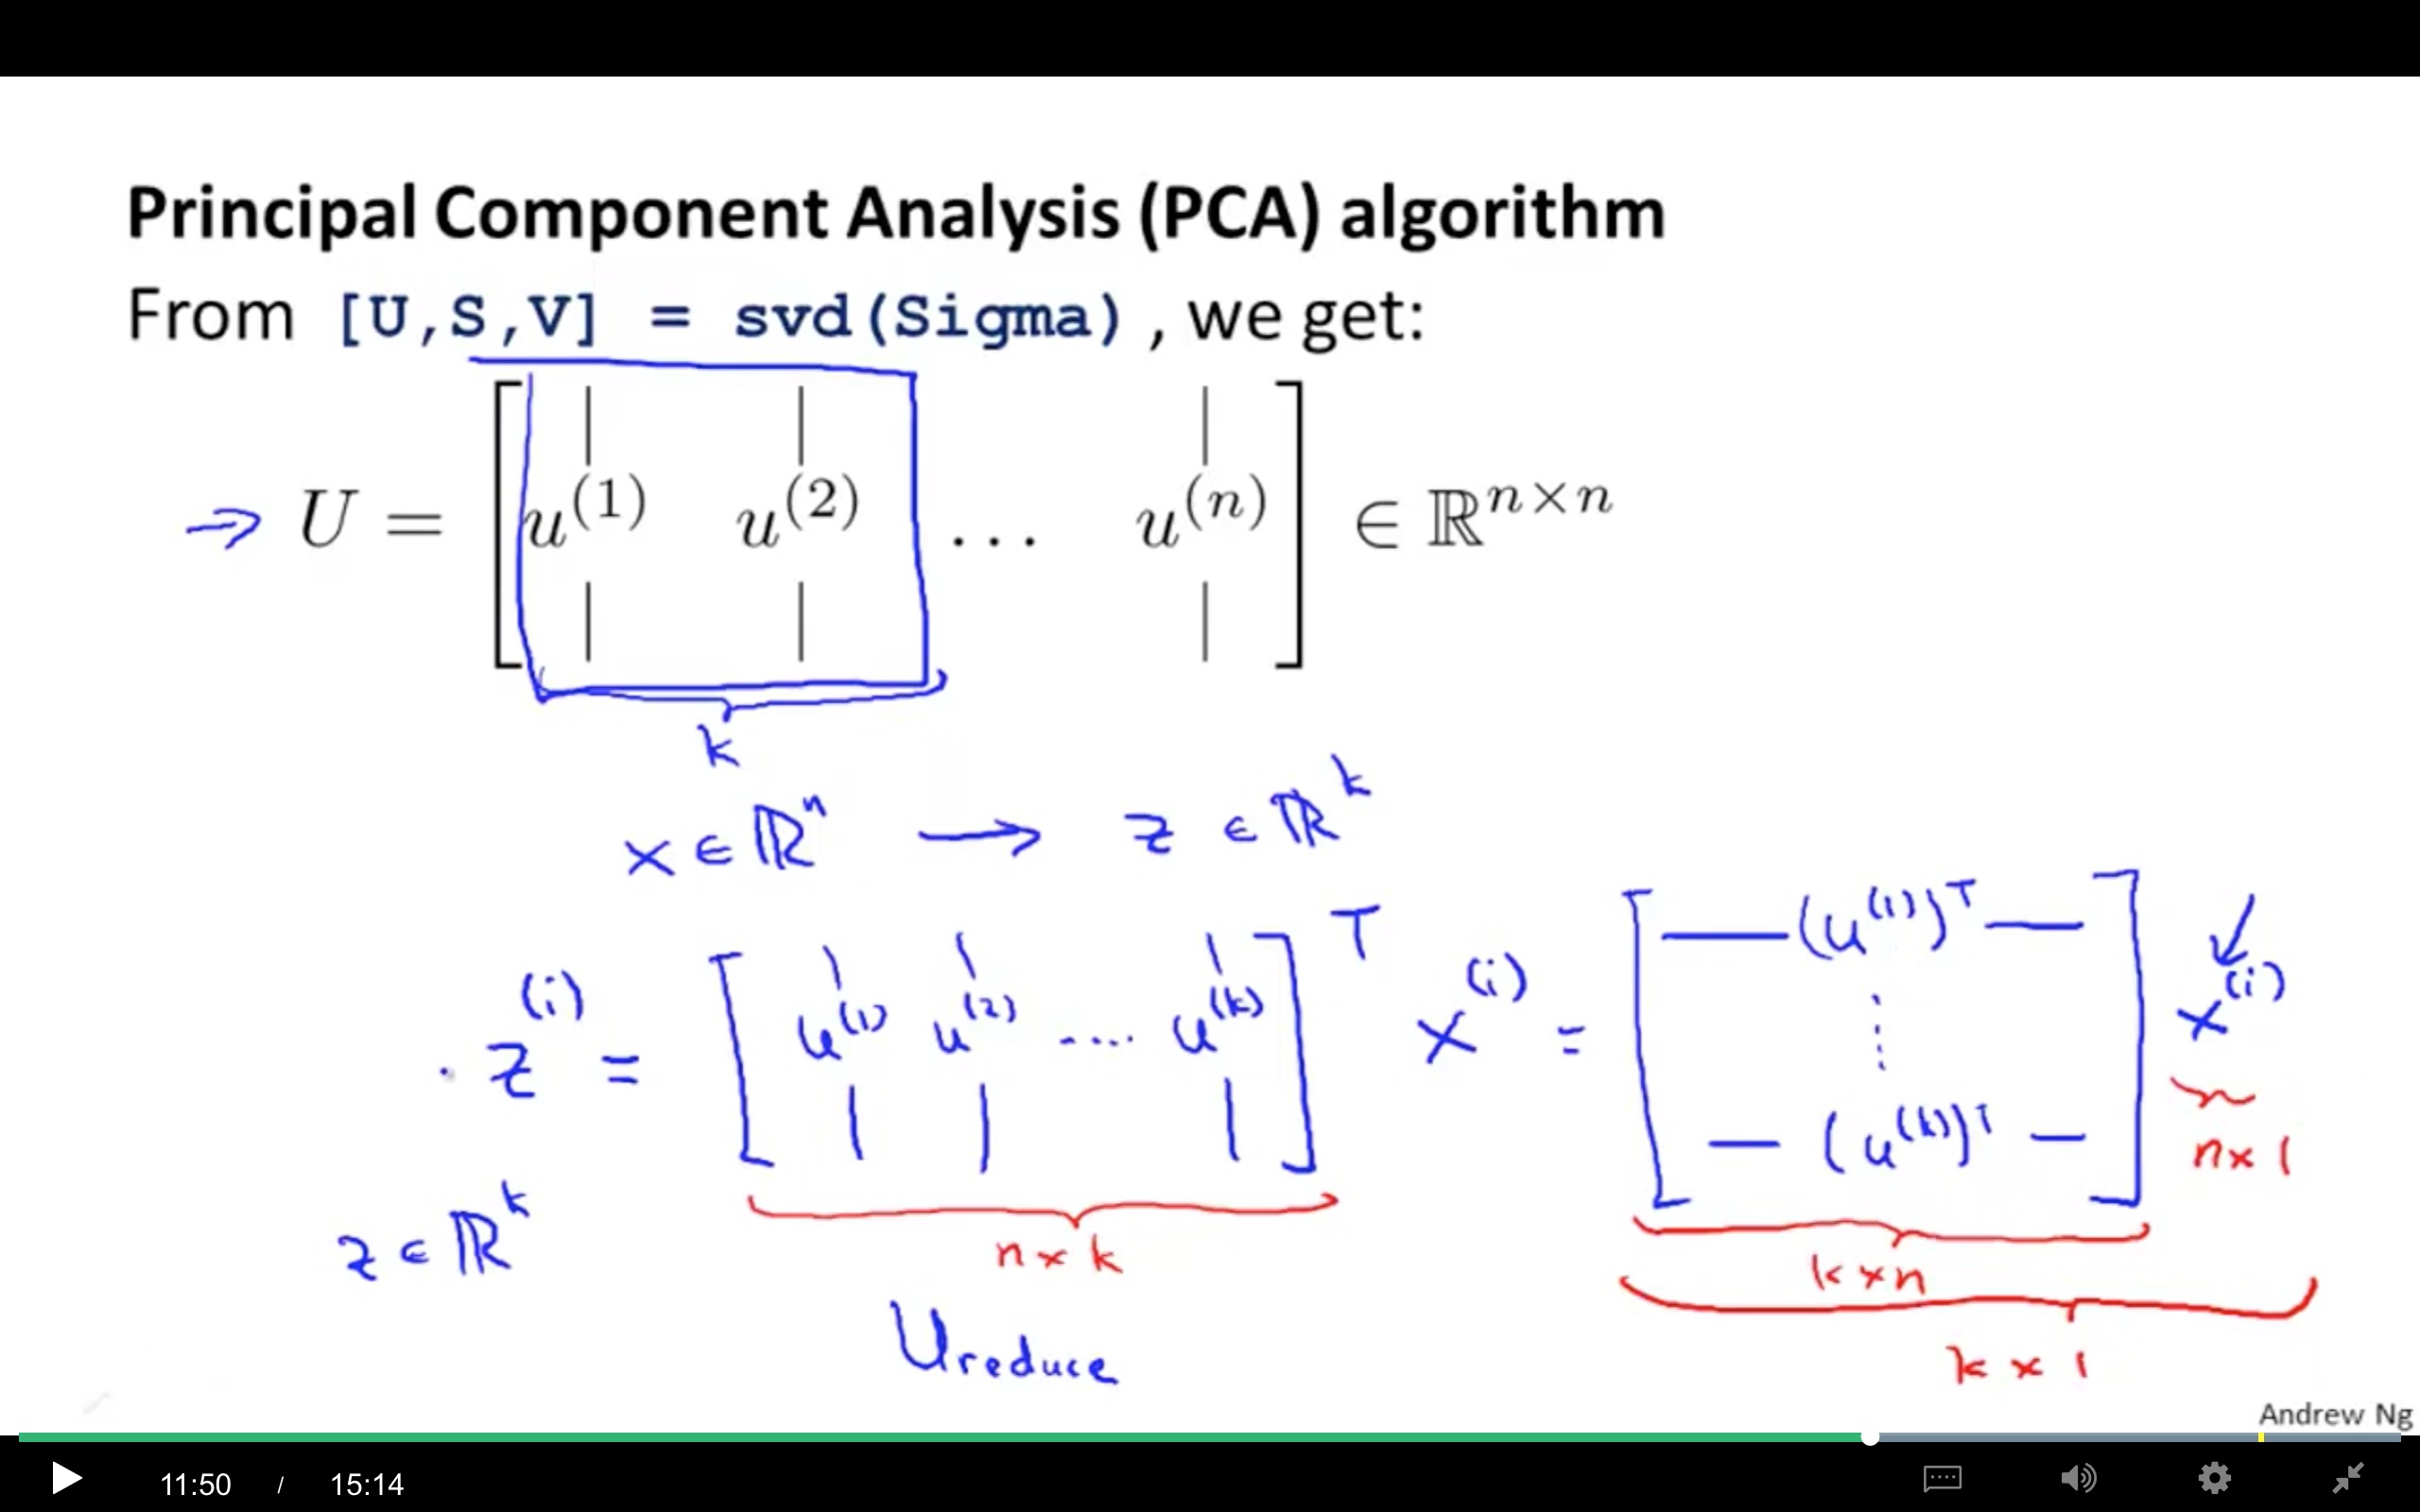 Principal Component Analysis (PCA) algorithm
From [U,S,V] = svd(Sigma) , we get:
⇒ U = [ u^(1) u^(2) ... u^(n) ] ∈ ℝ^{n×n}
k
x ∈ ℝ^n → z ∈ ℝ^k
z^(i) = [ u^(1) u^(2) .... u^(k) ]^T x^(i) = [ — (u^(1))^T — ⋮ — (u^(k))^T — ] x^(i)
n×1
z ∈ ℝ^k
n×k
k×n
U reduce
k×1
Andrew Ng
11:50 / 15:14